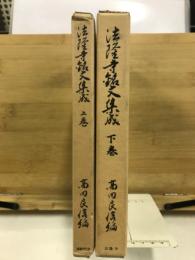 法隆寺銘文集成 上巻
高田良信編
法隆寺銘文集成 下巻
高田良信編